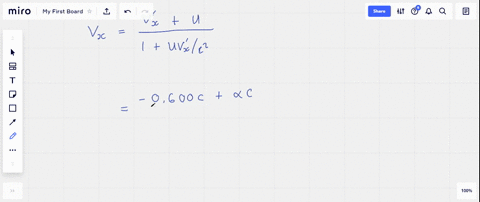 miro My First Board Share
Vx = V'x + u
1 + uV'x/c²
= -0.600c + αc
100%